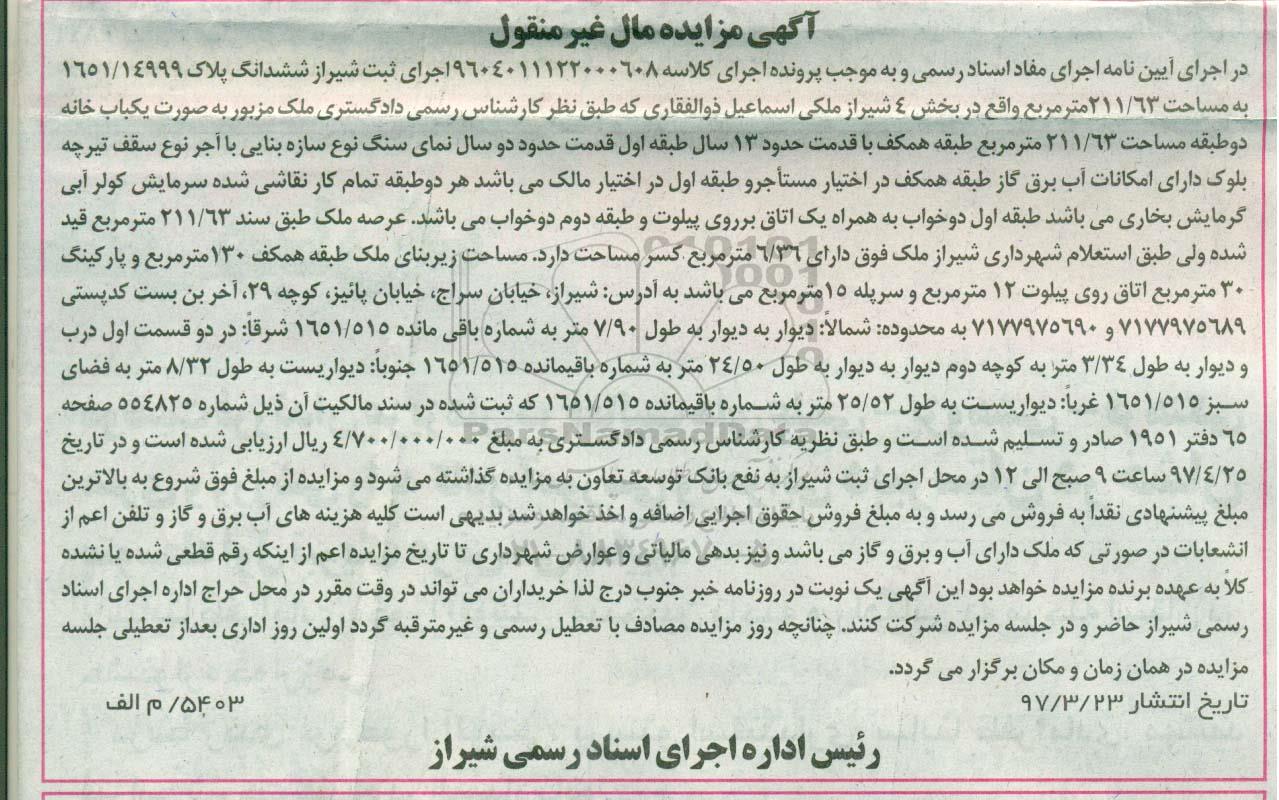 آگهی مزایده مال غیر منقول
در اجرای آیین نامه اجرای مفاد اسناد رسمی و به موجب پرونده اجرای کلاسه ۹۶۰۴۰۱۱۱۲۲۰۰۰۶۰۸اجرای ثبت شیراز ششدانگ پلاک ۱۶۵۱/۱۴۹۹۹
به مساحت ۲۱۱/۶۳مترمربع واقع در بخش ٤ شیراز ملکی اسماعیل ذوالفقاری که طبق نظر کارشناس رسمی دادگستری ملک مزبور به صورت یکباب خانه
دوطبقه مساحت ۲۱۱/۶۳ مترمربع طبقه همکف با قدمت حدود ۱۳ سال طبقه اول قدمت حدود دو سال نمای سنگ نوع سازه بنایی با آجر نوع سقف تیرچه
بلوک دارای امکانات آب برق گاز طبقه همکف در اختیار مستأجرو طبقه اول در اختیار مالک می باشد هر دوطبقه تمام کار نقاشی شده سرمایش کولر آبی
گرمایش بخاری می باشد طبقه اول دوخواب به همراه یک اتاق برروی پیلوت و طبقه دوم دوخواب می باشد. عرصه ملک طبق سند ۲۱۱/۶۳ مترمربع قید
شده ولی طبق استعلام شهرداری شیراز ملک فوق دارای ۶/۳۶ مترمربع کسر مساحت دارد. مساحت زیربنای ملک طبقه همکف ۱۳۰مترمربع و پارکینگ
۳۰ مترمربع اتاق روی پیلوت ۱۲ مترمربع و سرپله ۱۵مترمربع می باشد به آدرس: شیراز، خیابان سراج، خیابان پائیز، کوچه ۲۹، آخر بن بست کدپستی
۷۱۷۷۹۷۵۶۸۹ و ۷۱۷۷۹۷۵۶۹۰ به محدوده: شمالاً: دیوار به دیوار به طول ۷/۹۰ متر به شماره باقی مانده ۱۶۵۱/۵۱۵ شرقاً: در دو قسمت اول درب
و دیوار به طول ۳/۳٤ متر به کوچه دوم دیوار به دیوار به طول ۲٤/۵۰ متر به شماره باقیمانده ۱۶۵۱/۵۱۵ جنوباً: دیواریست به طول ۸/۳۲ متر به فضای
سبز ۱۶۵۱/۵۱۵ غرباً: دیواریست به طول ۲۵/۵۲ متر به شماره باقیمانده ۱۶۵۱/۵۱۵ که ثبت شده در سند مالکیت آن ذیل شماره ۵۵٤۸۲۵ صفحه
۶۵ دفتر ۱۹۵۱ صادر و تسلیم شده است و طبق نظریه کارشناس رسمی دادگستری به مبلغ ٤/۷۰۰/۰۰۰/۰۰۰ ریال ارزیابی شده است و در تاریخ
۹۷/٤/۲۵ ساعت ۹ صبح الی ۱۲ در محل اجرای ثبت شیراز به نفع بانک توسعه تعاون به مزایده گذاشته می شود و مزایده از مبلغ فوق شروع به بالاترین
مبلغ پیشنهادی نقداً به فروش می رسد و به مبلغ فروش حقوق اجرایی اضافه و اخذ خواهد شد بدیهی است کلیه هزینه های آب برق و گاز و تلفن اعم از
انشعابات در صورتی که ملک دارای آب و برق و گاز می باشد و نیز بدهی مالیاتی و عوارض شهرداری تا تاریخ مزایده اعم از اینکه رقم قطعی شده یا نشده
کلاً به عهده برنده مزایده خواهد بود این آگهی یک نوبت در روزنامه خبر جنوب درج لذا خریداران می تواند در وقت مقرر در محل حراج اداره اجرای اسناد
رسمی شیراز حاضر و در جلسه مزایده شرکت کنند. چنانچه روز مزایده مصادف با تعطیل رسمی و غیرمترقبه گردد اولین روز اداری بعداز تعطیلی جلسه
مزایده در همان زمان و مکان برگزار می گردد.
تاریخ انتشار ۹۷/۳/۲۳
۵۴۰۳/ م الف
رئیس اداره اجرای اسناد رسمی شیراز
ParsNamadData